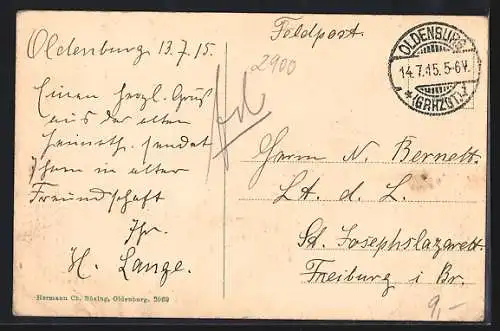 Oldenburg 13.7.15.
Einen herzl. Gruß
aus der alten
Heimath sendet
Ihnen in alter
Freundschaft
Ihr.
H. Lange.
Hermann Ch. Büsing, Oldenburg.
Feldpost.
2900
OLDENBURG
14.7.15.5-6V.
*(GRHZGT.)
Herrn N. Bernett
Lt. d. L.
St. Josephslazarett
Freiburg i Br.
9,-